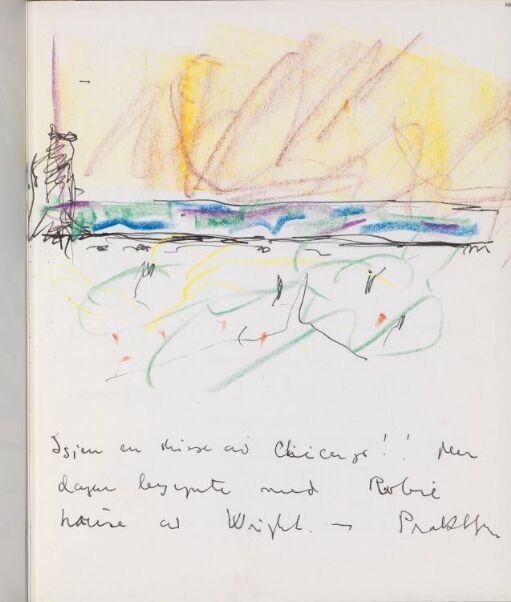 Igjen en skisse av Chicago!! Men
dagen begynte med Robie
house av Wright. –